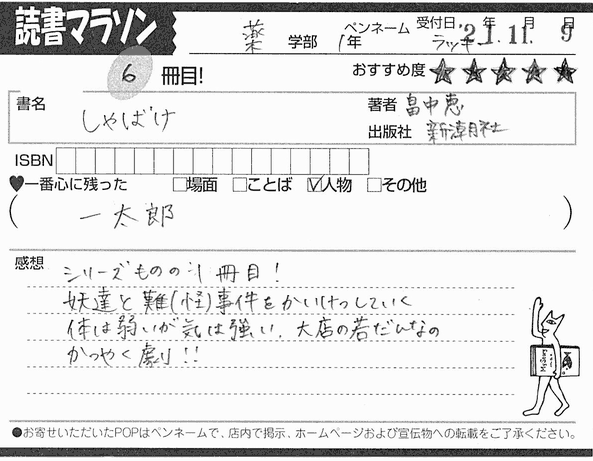 読書マラソン
薬 学部 1年 ペンネーム ラッキー 受付日 '21.11.9 年 月 日
6 冊目! おすすめ度 ★★★★★
書名 しゃばけ 著者 畠中恵
出版社 新潮社
ISBN
♥一番心に残った □場面 □ことば ☑人物 □その他
( 一太郎 )
感想 シリーズものの1冊目!
妖達と難(怪)事件をかいけつしていく
体は弱いが気は強い、大店の若だんなの
かつやく劇!!
Mystery
●お寄せいただいたPOPはペンネームで、店内で掲示、ホームページおよび宣伝物への転載をご了承ください。